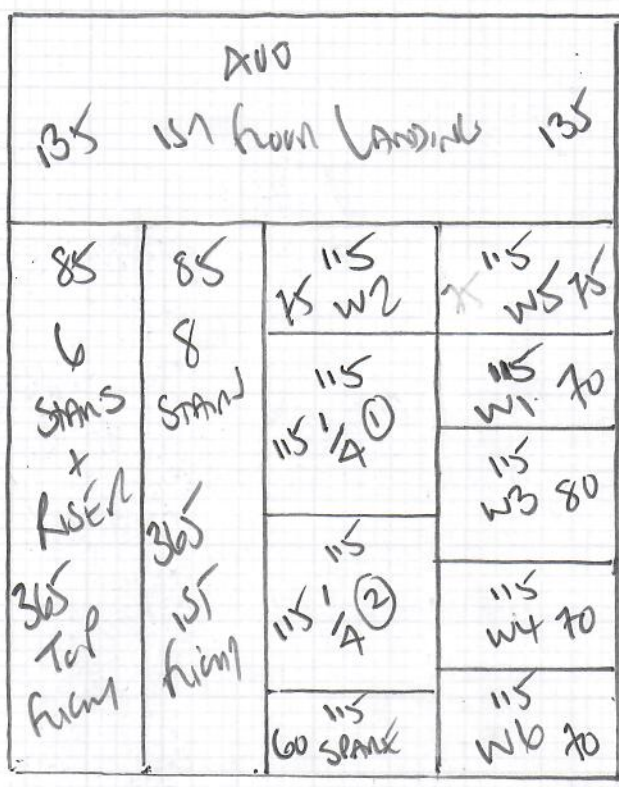 AVO
135 1ST FLOOR LANDING 135
85
6
STAIRS
+
RISER
365
TOP
FLIGHT
85
8
STAIRS
365
1ST
FLIGHT
115
75 W2
115
115 1/4 ①
115
115 1/4 ②
115
60 SPARE
115
75 W5 75
115
W1 70
115
W3 80
115
W4 70
115
W6 70